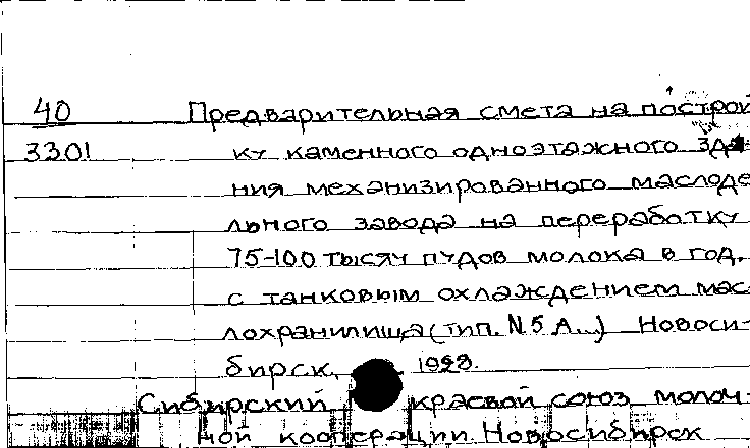 40 Предварительная смета на построй
3301 ку каменного одноэтажного зда
ния механизированного маслоде
льного завода на переработку
75-100 тысяч пудов молока в год.
с танковым охлаждением мас
лохранилища (тип. N5 А...) Новоси-
бирск, 1928.
Сибирский краевой союз молоч-
ной кооперации. Новосибирск